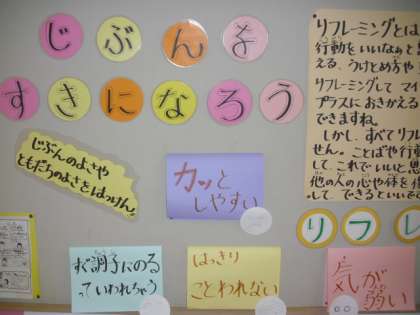 じぶんを
すきになろう
じぶんのよさや
ともだちのよさをはっけん。
カッと
しやすい
すぐ調子にのる
っていわれちゃう
はっきり
ことわれない
気が
弱い
リフレーミングとは
行動をいいなぁと
える、うけとめ方や
リフレーミングして マイ
プラスにおきかえる
できますね。
しかし、すべてリフ
せん。ことばや行動
して、これでいいと思
他の人の心や体を傷
して、できるといいで
リフレ